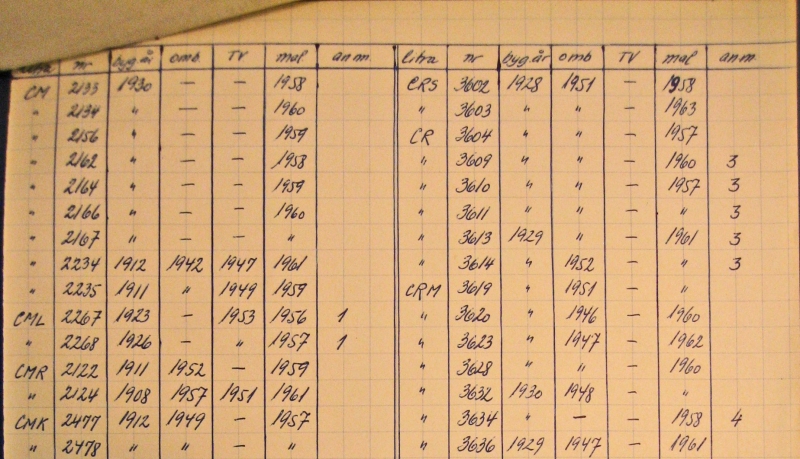 litra nr byg.år omb. TV mal anm. litra nr byg.år omb TV mal anm.
CM 2133 1930 — — 1958 CRS 3602 1928 1951 — 1958
" 2134 " — — 1960 " 3603 " " — 1963
" 2156 " — — 1959 CR 3604 " " — 1957
" 2162 " — — 1958 " 3609 " " — 1960 3
" 2164 " — — 1959 " 3610 " " — 1957 3
" 2166 " — — 1960 " 3611 " " — " 3
" 2167 " — — " " 3613 1929 " — 1961 3
" 2234 1912 1942 1947 1961 " 3614 " 1952 — " 3
" 2235 1911 " 1949 1959 CRM 3619 " 1951 — "
CML 2267 1923 — 1953 1956 1 " 3620 " 1946 — 1960
" 2268 1926 — " 1957 1 " 3623 " 1947 — 1962
CMR 2122 1911 1952 — 1959 " 3628 " " — 1960
" 2124 1908 1957 1951 1961 " 3632 1930 1948 — "
CMK 2477 1912 1949 — 1957 " 3634 " — — 1958 4
" 2478 " " — " " 3636 1929 1947 — 1961